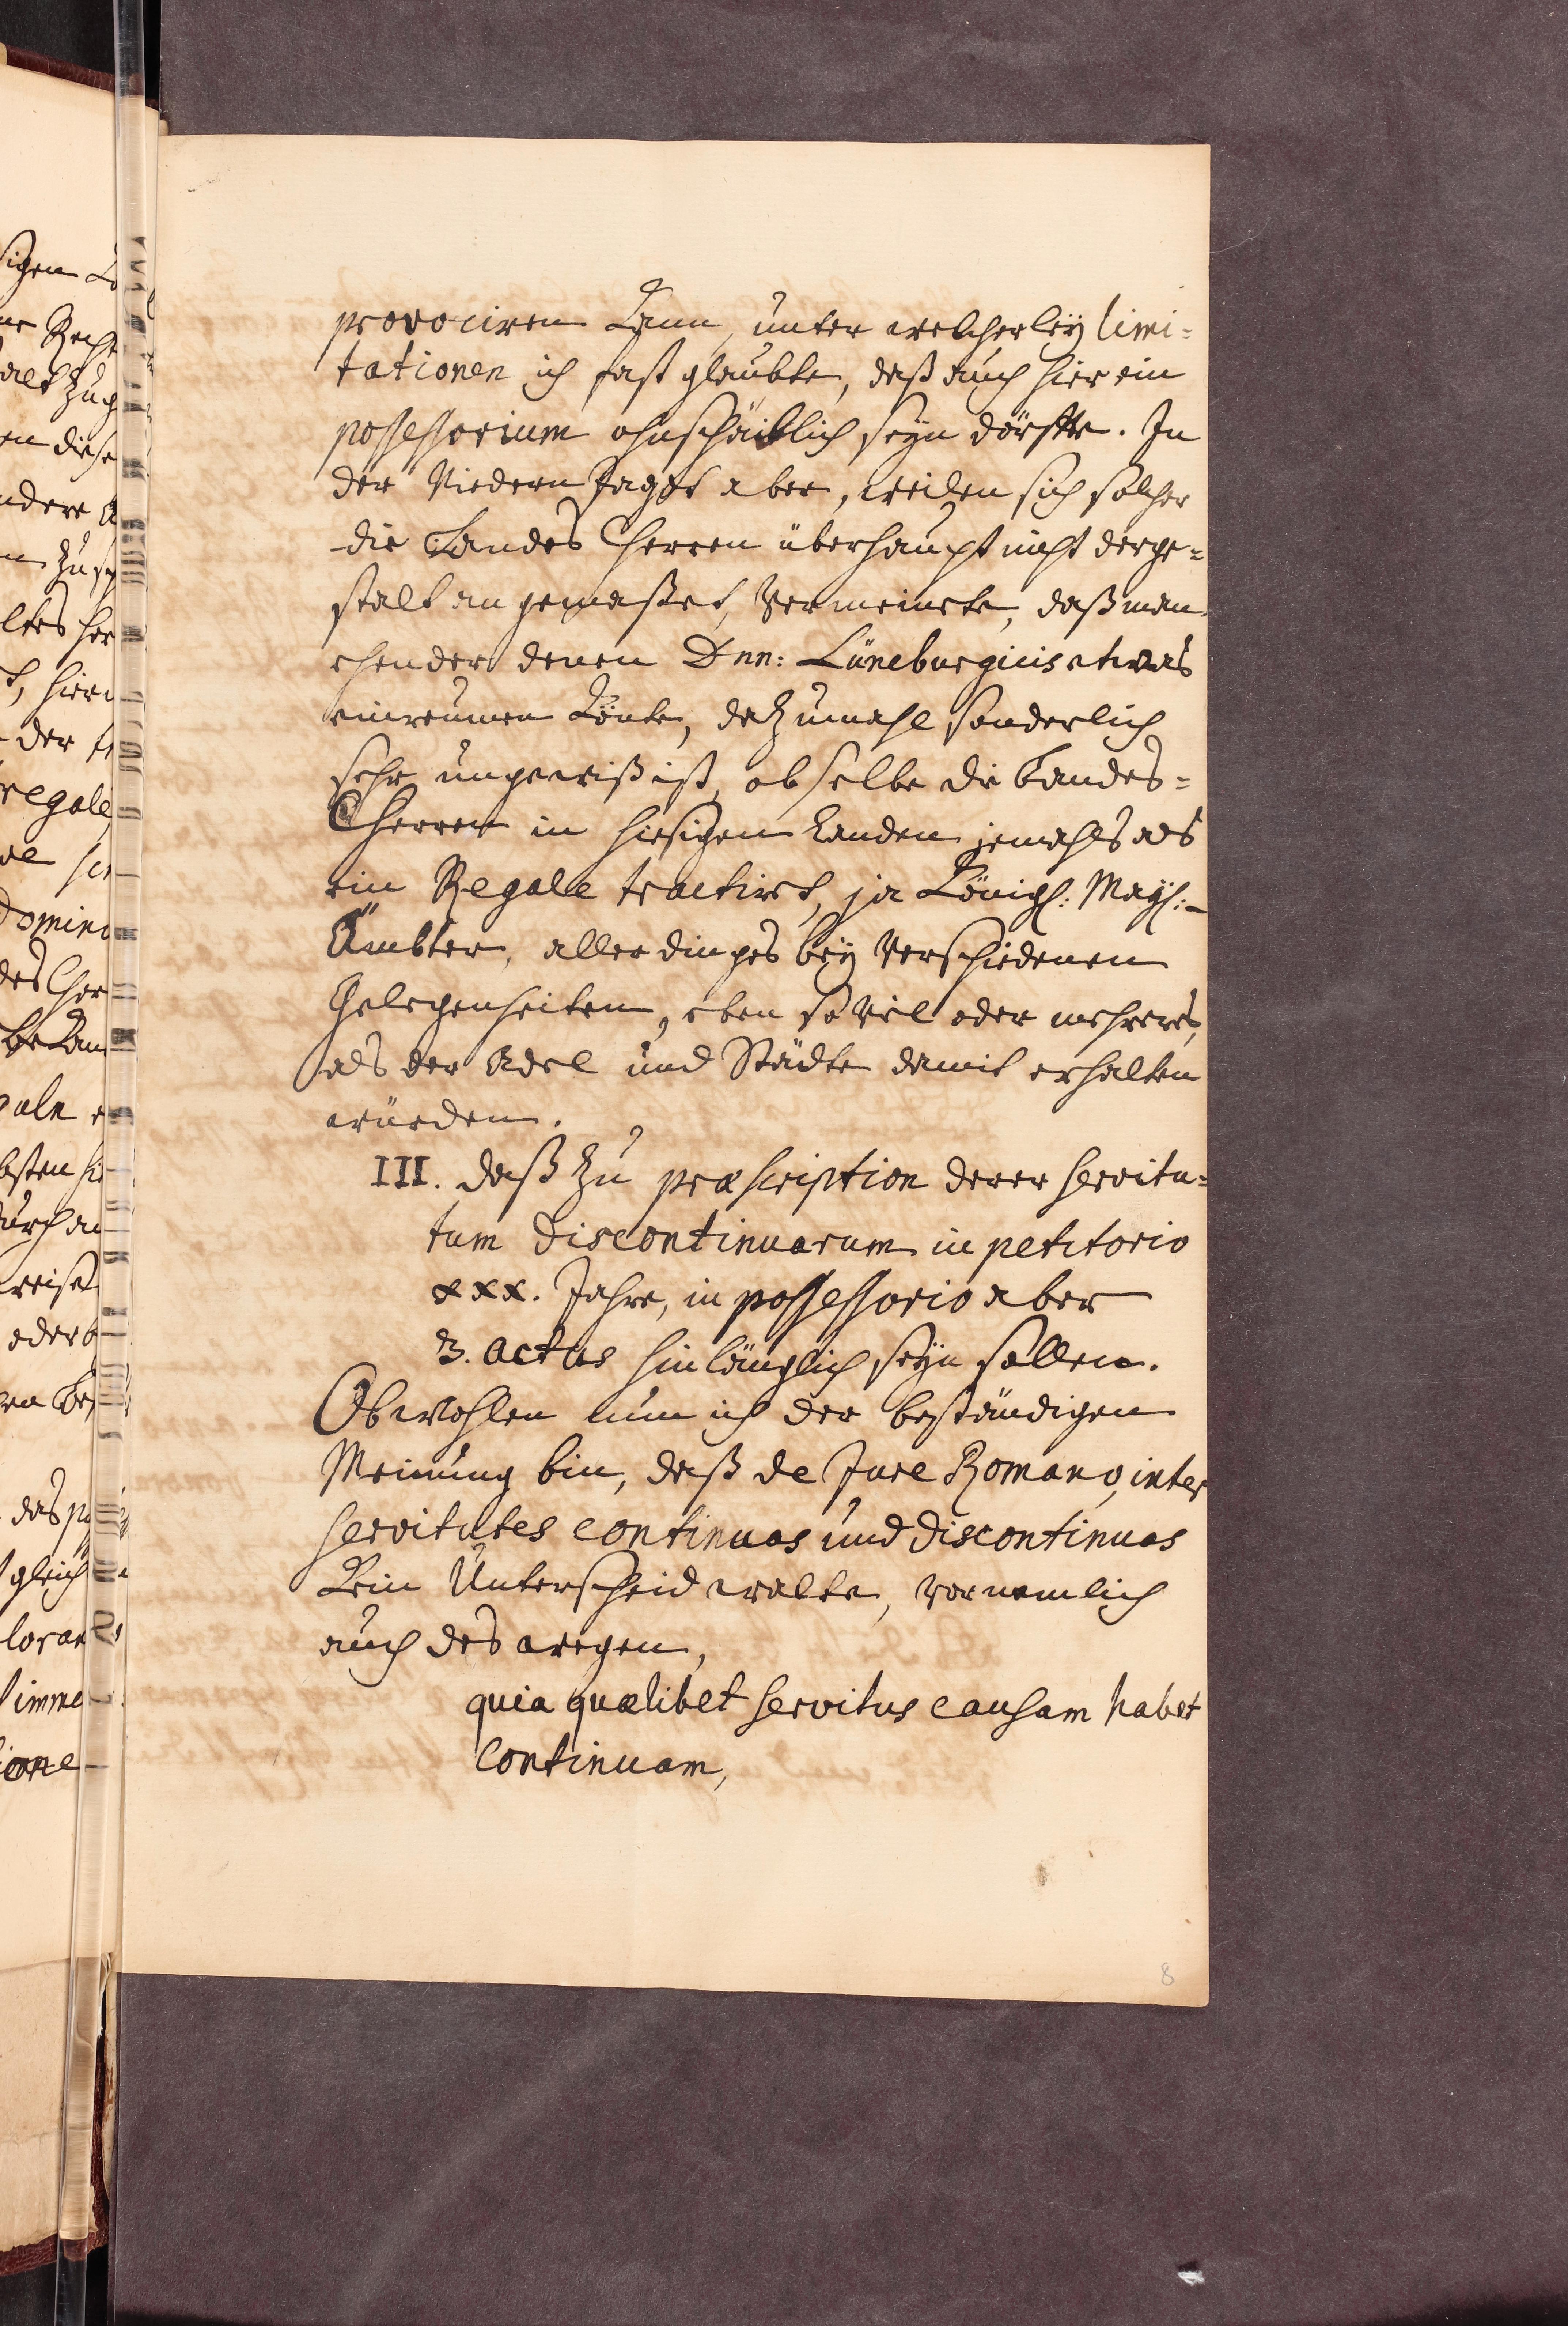 provociren kann, unter welcherley limi=
tationen ich fast glaubte, daß auch hier ein
possessorium ohnschädtlich seyn dörffte. In
der Niedern Jagdt aber, weilen sich solcher
die Landes Herren überhaupt nicht derge=
stalt angemaßet, vermeinete, daß man
ehender denen Dnn: Lüneburgicis etwas
einreumen könte, dazumahl sonderlich
sehr ungewiß ist, ob selbe die Landes=
Herren in hiesigen Landen jemahls als
ein Regale tractiret, ja Königl: Mayt:
Ämbter, allerdinges bey verschiedenen
Gelegenheiten, eben so viel oder mehreres,
als der Adel und Städte damit erhalten
würden.
III. daß zu præscription derer servitu=
tum discontinuarum in petitorio
xxx. Jahre, in possessorio aber
3. actus hinlänglich seyn sollen.
Obwohlen nun ich der beständigen
Meinung bin, daß de Jure Romano, inter
servitutes continuas und discontinuas
kein Unterscheid walte, vornemlich
auch deswegen,
quia quælibet servitus causam habet
continuam,
8